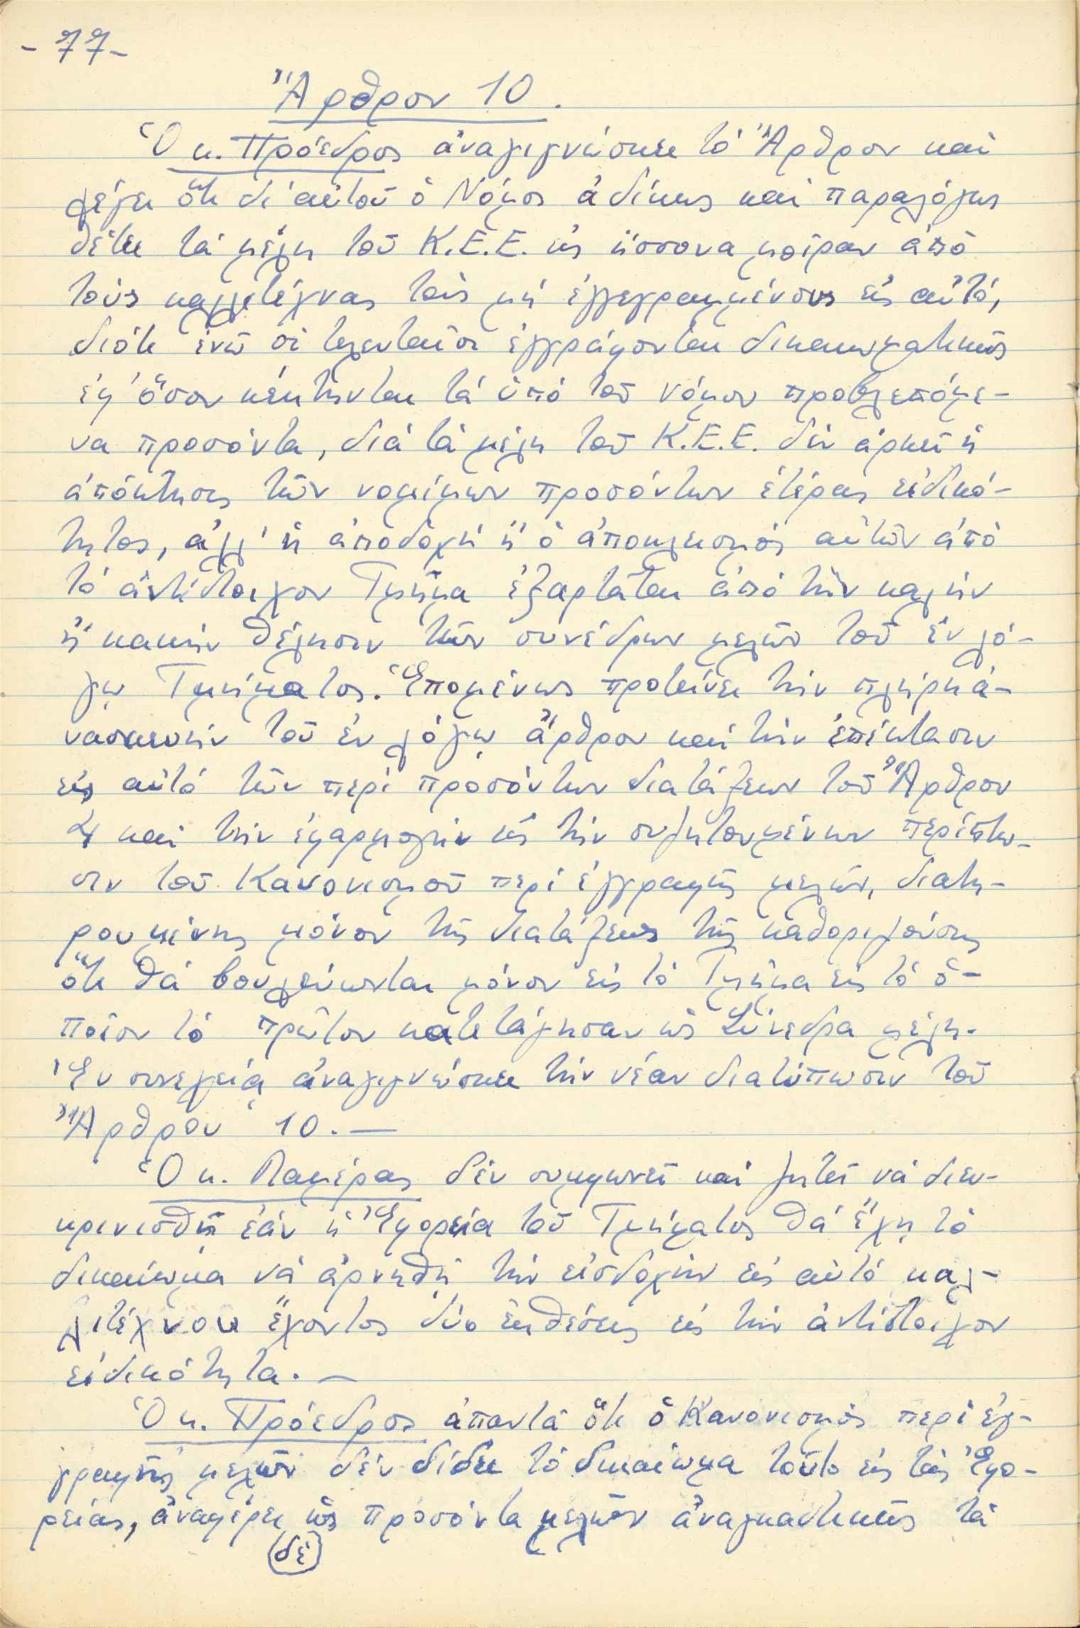 - 77 -
Ἄρθρον 10.
Ὁ κ. Πρόεδρος ἀναγιγνώσκει τό Ἄρθρον καί
λέγει ὅτι δι' αὐτοῦ ὁ Νόμος ἀδίκως καί παραλόγως
θέτει τά μέλη τοῦ Κ.Ε.Ε. εἰς ἥσσονα μοῖραν ἀπό
τούς καλλιτέχνας τούς μή ἐγγεγραμμένους εἰς αὐτό,
διότι ἐνῶ οἱ τελευταῖοι ἐγγράφονται δικαιωματικῶς
ἐφ' ὅσον κέκτηνται τά ὑπό τοῦ νόμου προβλεπόμε-
να προσόντα, διά τά μέλη τοῦ Κ.Ε.Ε. δέν ἀρκεῖ ἡ
ἀπόκτησις τῶν νομίμων προσόντων ἑτέρας εἰδικό-
τητος, ἀλλ' ἡ ἀποδοχή ἤ ὁ ἀποκλεισμός αὐτῶν ἀπό
τό ἀντίστοιχον Τμῆμα ἐξαρτᾶται ἀπό τήν καλήν
ἤ κακήν θέλησιν τῶν συνέδρων μελῶν τοῦ ἐν λό-
γῳ Τμήματος. Ἑπομένως προτείνει τήν πλήρη ἀ-
νασκευήν τοῦ ἐν λόγῳ ἄρθρου καί τήν ἐπέκτασιν
εἰς αὐτό τῶν περί προσόντων διατάξεων τοῦ Ἄρθρου
4 καί τήν ἐφαρμογήν εἰς τήν συζητουμένην περίπτω-
σιν τοῦ Κανονισμοῦ περί ἐγγραφῆς μελῶν, διατη-
ρουμένης μόνον τῆς διατάξεως τῆς καθοριζούσης
ὅτι θά βουλεύωνται μόνον εἰς τό Τμῆμα εἰς τό ὁ-
ποῖον τό πρῶτον κατετάγησαν ὡς Σύνεδρα μέλη.
Ἐν συνεχείᾳ ἀναγιγνώσκει τήν νέαν διατύπωσιν τοῦ
Ἄρθρου 10.—
Ὁ κ. Παμέρας δέν συμφωνεῖ καί ζητεῖ νά διευ-
κρινισθῇ ἐάν ἡ Ἐφορεία τοῦ Τμήματος θά ἔχῃ τό
δικαίωμα νά ἀρνηθῇ τήν εἰσδοχήν εἰς αὐτό καλ-
λιτέχνου ἔχοντος δύο ἐκθέσεις εἰς τήν ἀντίστοιχον
εἰδικότητα.—
Ὁ κ. Πρόεδρος ἀπαντᾶ ὅτι ὁ Κανονισμός περί ἐγ-
γραφῆς μελῶν δέν δίδει τό δικαίωμα τοῦτο εἰς τάς Ἐφο-
ρείας, ἀναφέρει ὡς προσόντα μελῶν ἀναγκαστικῶς τά
δέ